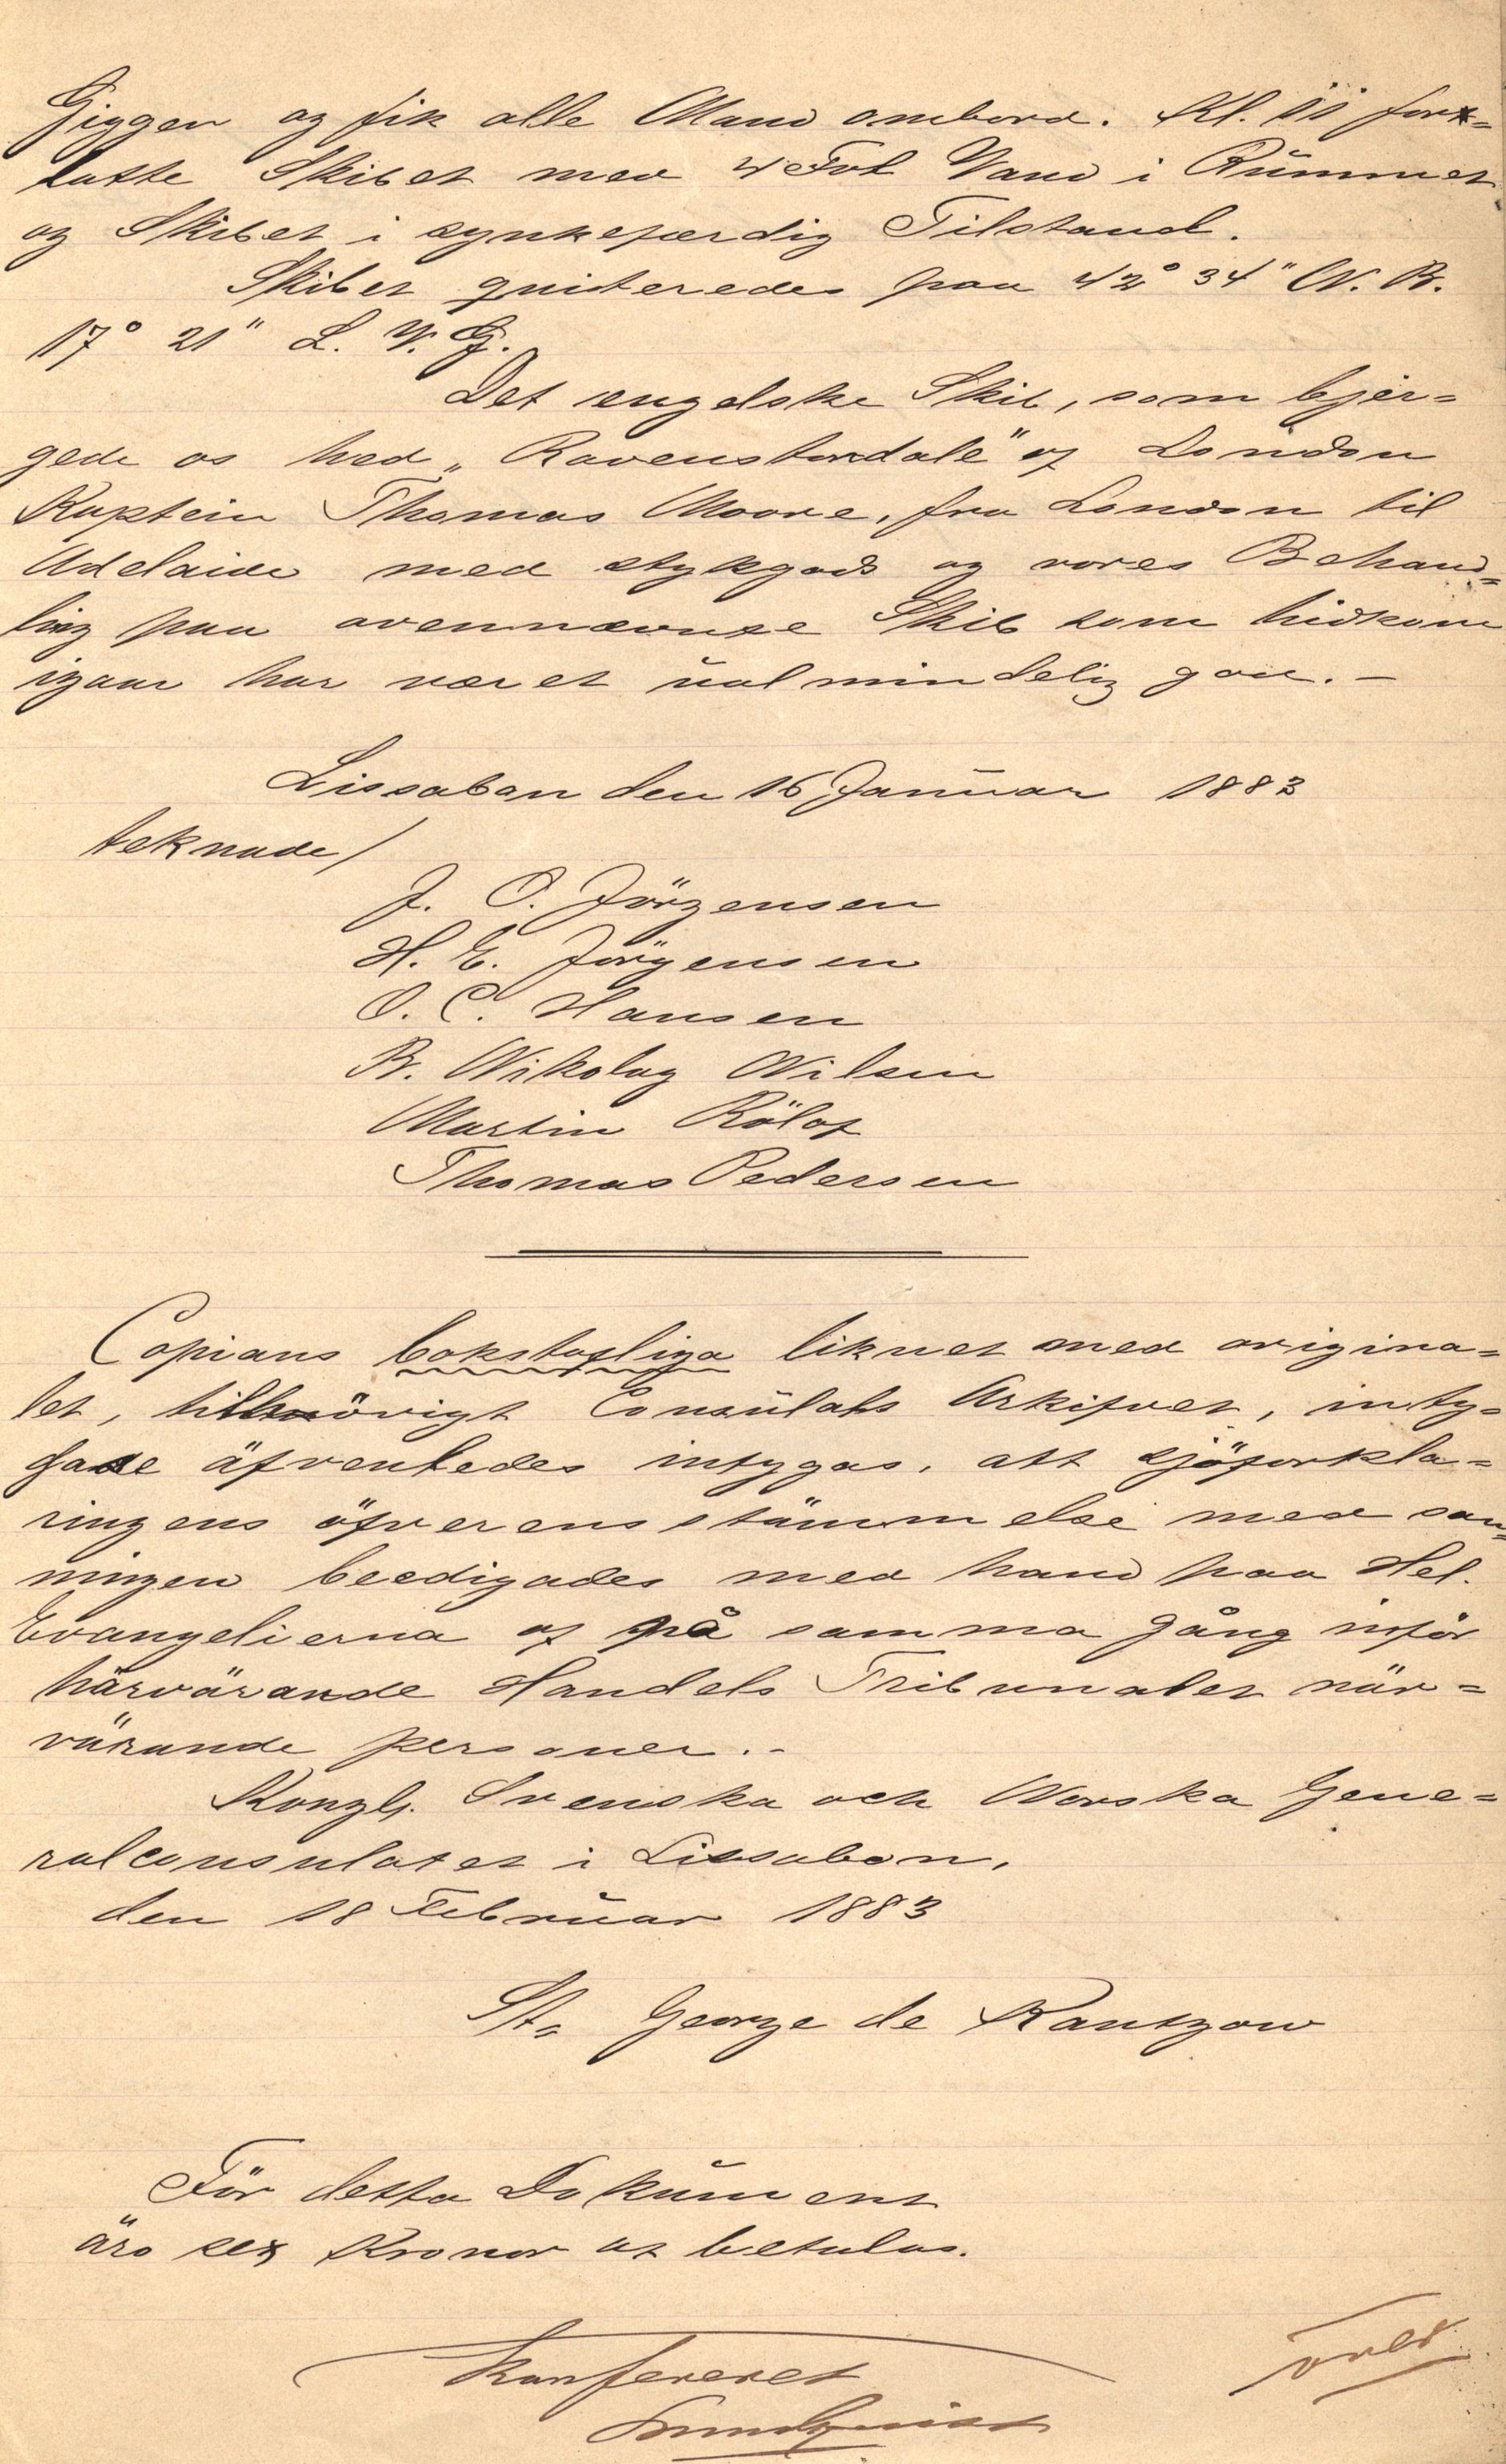 Giggen og fik alle Mand ombord. Kl. 11 for=
latte Skibet med 4 Fod Vand i Rummet
og Skibet i synkefærdig Tilstand.
Skibet quiteredes paa 42° 34" N. B.
17° 21" L. V. G.
Det engelske Skib, som bjer=
gede os hed „Ravenstondale" af London
Kaptein Thomas Moore, fra London til
Adelaide med stykgods og vores Behand=
ling paa ovennævnte Skib som hidkom
igaar har været ualmindelig god. –
Lissabon den 16 Januar 1883
teknade/
J. O. Jörgensen
H. E. Jörgensen
O. C. Hansen
B. Nikolay Nilsen
Martin Rölof
Thomas Pedersen
Copians bokstafliga likhet med origina=
let, tillhörigt Consulats Arkifvet, inty=
gade äfvenledes intygas, att sjöforkla=
ringens öfverensstämmelse med san=
ningen beedigades med hand paa Hel.
Evangelierna af på samma gång inför
härvärande Handels Tribunalet när=
värande personer. –
Kongl. Svenska och Norska Gene=
ralconsulatet i Lissabon,
den 18 Februar 1883
St. George de Rantzow
För detta Dokument
äro sex Kronor at betalas.
Konfereret